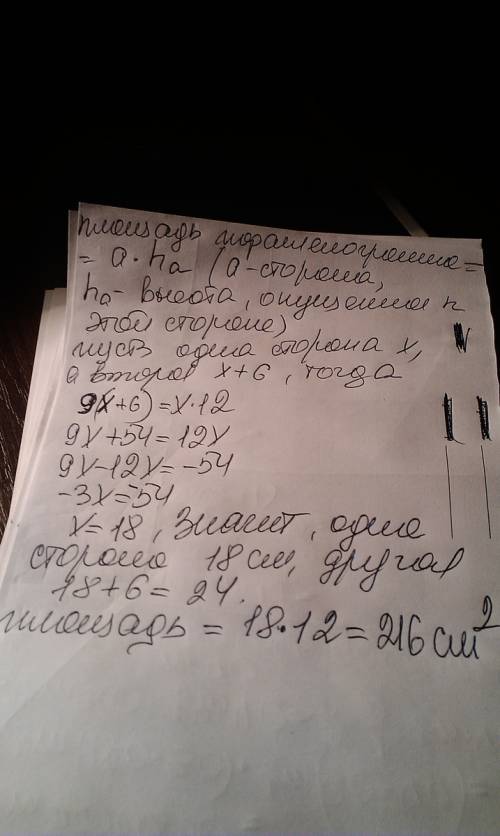 площадь параллелограмма =
= a · ha (a - сторона,
ha - высота, опущенная к
этой стороне)
пусть одна сторона x,
а вторая x+6, тогда
9(x+6)=x·12
9x+54=12x
9x-12x=-54
-3x=-54
x=18, значит, одна
сторона 18 см, другая
18+6=24.
площадь = 18·12=216 см²